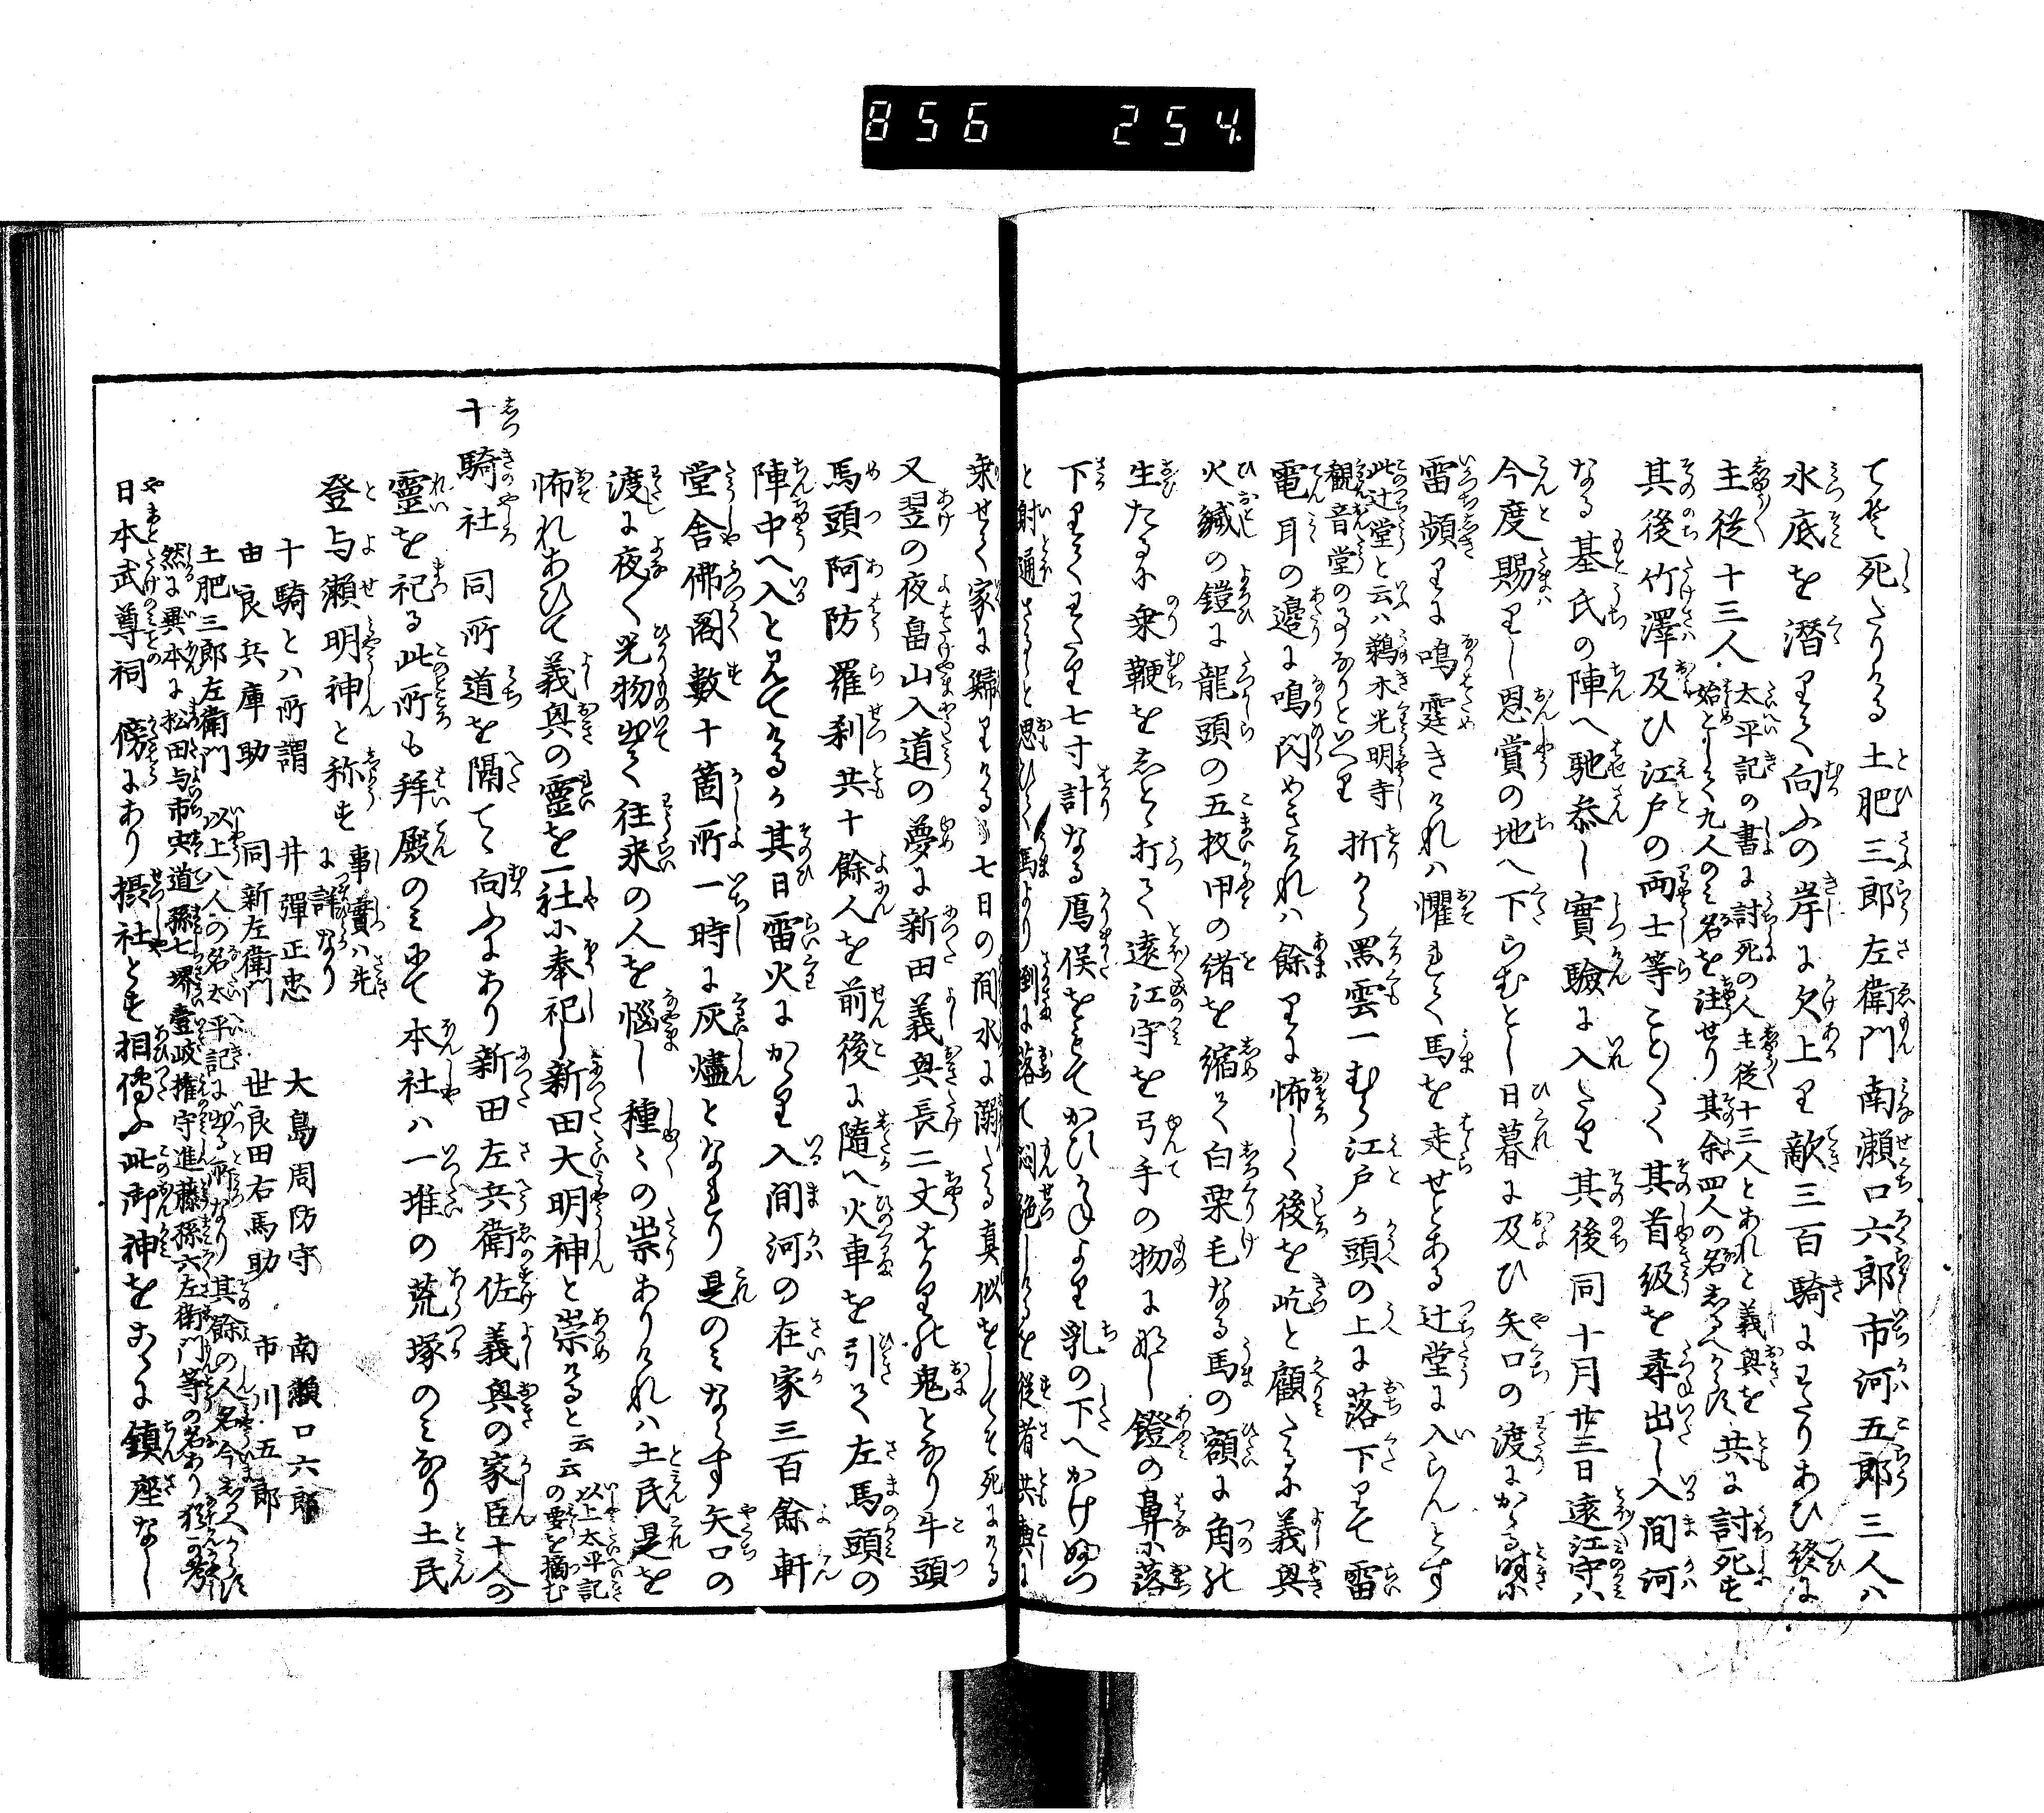 856 254
てそ死たりける土肥三郎左衛門南瀬口六郎市河五郎三人ハ
水底を潜りて向ふの岸に欠上り敵三百騎にわたりあひ終に
主従十三人
太平記の書に討死の人主従十三人とあれと義興を
始として九人のミ名を注せり其余四人の名しるへからす
共に討死す
其後竹澤及ひ江戸の両士等こと〳〵く其首級を尋出し入間河
なる基氏の陣へ馳参し實驗に入たり其後同十月廿三日遠江守ハ
今度賜りし恩賞の地へ下らむとし日暮に及ひ矢口の渡にかゝる時に
雷頻りに鳴霆きけれハ懼れて馬を走せとある辻堂に入らんとす
此辻堂と云ハ鵜木光明寺
観音堂の事なりといへり
折から黑雲一むら江戸か頭の上に落下りて雷
電耳の邊に鳴閃めきけれハ餘りに怖しく後を屹と顧たるに義興
火縅の鎧に龍頭の五枚甲の緒を縮て白栗毛なる馬の額に角の
生たるに乗鞭をしとゝ打て遠江守を弓手の物になし鐙の鼻に落
下りてわたり七寸計なる鴈俣をもてかひかねより乳の下へかけぬつ
と射通さるゝと思ひて馬より倒に落て悶絶しけるを従者共輿に
乗せて家に歸りける七日の間水に溺たる真似をしてそ死にける
又翌の夜畠山入道の夢に新田義興長二丈はかりの鬼となり牛頭
馬頭阿防羅刹共十餘人を前後に随へ火車を引て左馬頭の
陣中へ入と見てけるか其日雷火にかゝり入間河の在家三百餘軒
堂舎佛閣數十箇所一時に灰燼となれり是のミならす矢口の
渡に夜〳〵光物出て往来の人を惱し種〻の祟ありけれハ土民是を
怖れあひて義興の靈を一社に奉祀し新田大明神と崇けると云云
以上太平記
の要を摘む
十騎社 同所道を隔てゝ向ふにあり新田左兵衛佐義興の家臣十人の
靈を祀る此所も拜殿のミにて本社ハ一堆の荒塚のミなり土民
登与瀬明神と称す
事實ハ先
に詳なり
十騎とハ所謂 井彈正忠 大島周防守 南瀬口六郎
由良兵庫助 同新左衛門 世良田右馬助 市川五郎
土肥三郎左衛門 以上八人の名太平記に出る所なり其餘の人名今しるへからす
然に異本に松田与市央道孫七堺壹岐権守進藤孫六左衛門等の名あり猶可考
日本武尊祠 傍にあり摂社とす相傳ふ此御神をこゝに鎮座なし